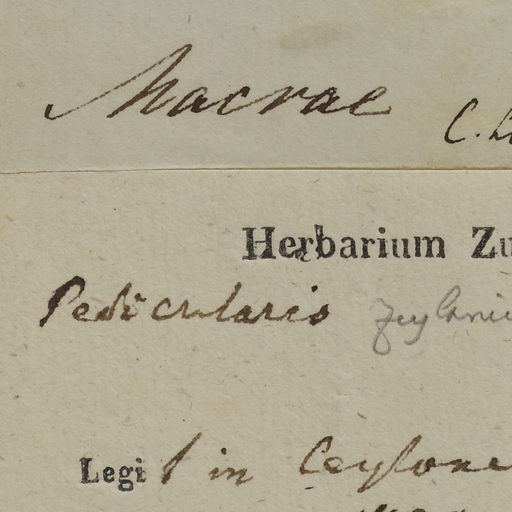 Macrae
C. L
Herbarium Zu
Pedicularis zeylanic
Legit in Ceylone